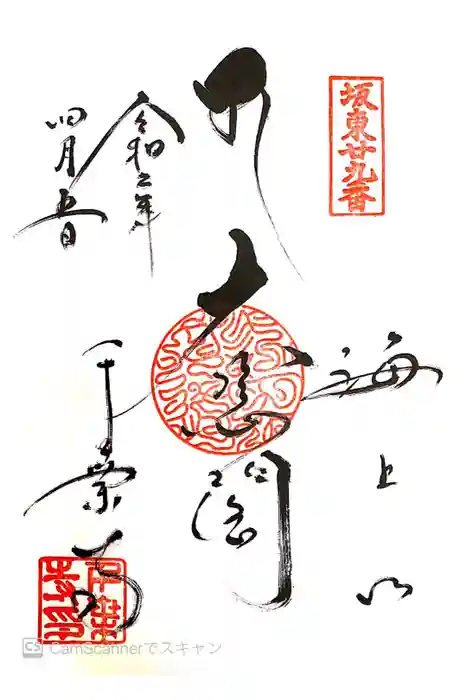 坂東廿九番
海上山
大悲閣
令和二年
四月五日
千葉寺
CS CamScannerでスキャン